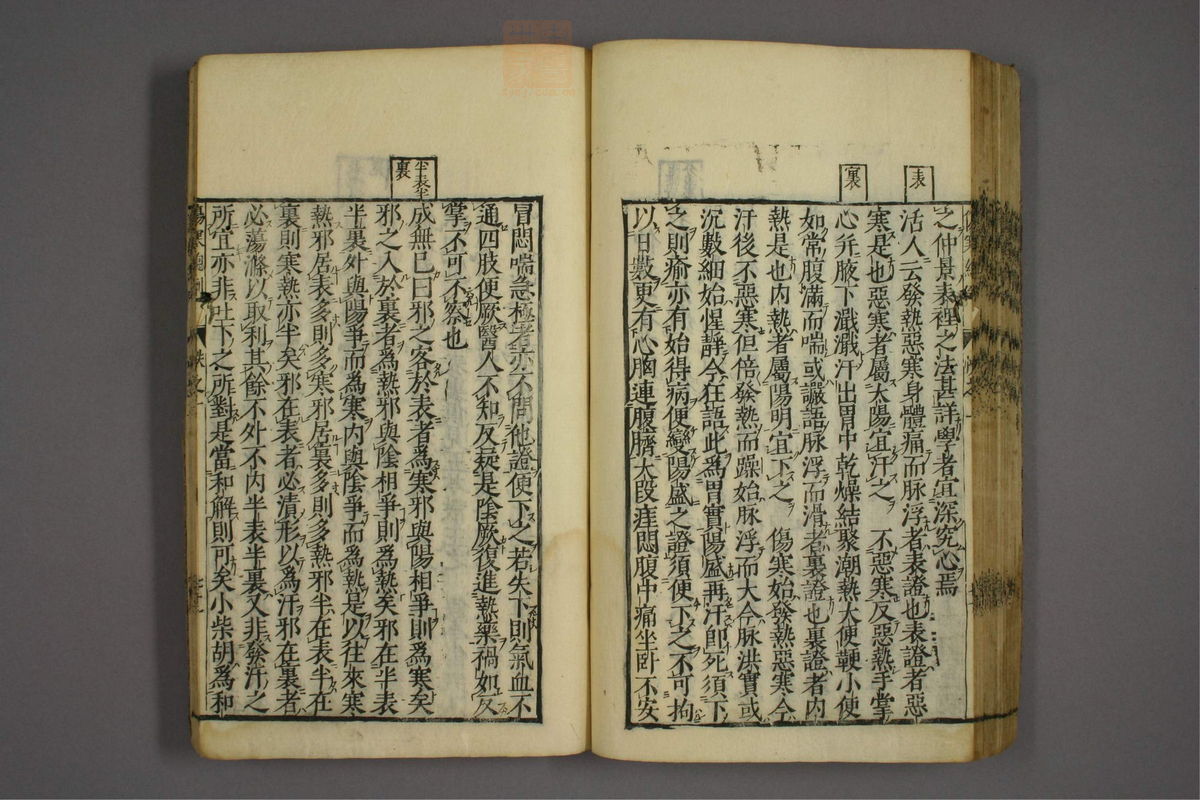 表
裏
之仲景表裡之法甚詳學者宜深究心焉
活人云發熱惡寒身體痛而脉浮者表證也表證者惡
寒是也惡寒者屬太陽宜汗之　不惡寒反惡熱手掌
心并腋下濈濈汗出胃中乾燥結聚潮熱大便鞕小便
如常腹滿而喘或讝語脉浮而滑者裏證也裏證者内
熱是也内熱者屬陽明宜下之　傷寒始發熱惡寒今
汗後不惡寒但倍發熱而躁始脉浮而大今脉洪實或
沉數細始惺靜今狂語此為胃實陽盛再汗即死須下
之則瘉亦有始得病便變陽盛之證須便下之不可拘
以日數更有心胸連腹臍大段疰悶腹中痛坐卧不安
半表半
裏
冒悶喘急極者亦不問他證便下之若失下則氣血不
通四肢便厥醫人不知反疑是陰厥復進熱藥禍如反
掌不可不察也
成無已曰邪之客於表者為寒邪與陽相爭則為寒矣
邪之入於裏者為熱邪與陰相爭則為熱矣邪在半表
半裏外與陽爭而為寒内與陰爭而為熱是以往來寒
熱邪居表多則多寒邪居裏多則多熱邪半在表半在
裏則寒熱亦半矣邪在表者必漬形以為汗邪在裏者
必蕩滌以取利其餘不外不内半表半裏又非發汗之
所宜亦非吐下之所對是當和解則可矣小柴胡為和